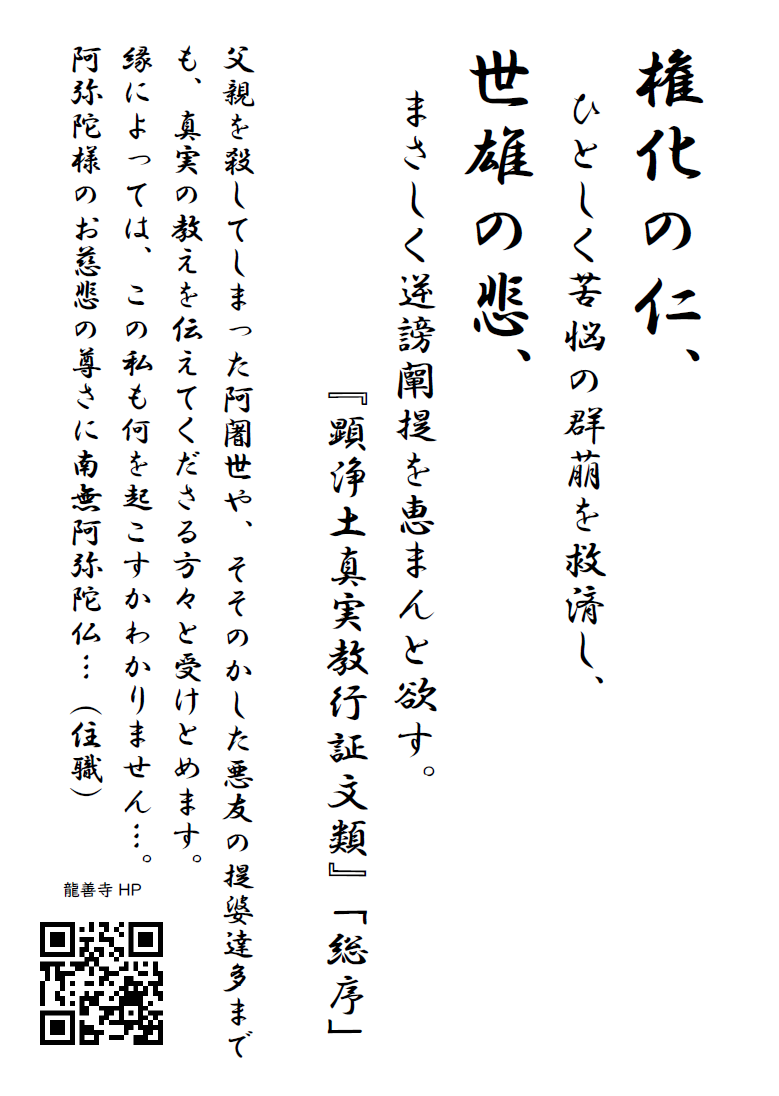 権化の仁、
ひとしく苦悩の群萠を救済し、
世雄の悲、
まさしく逆謗闡提を恵まんと欲す。
『顕浄土真実教行証文類』「総序」
父親を殺してしまった阿闍世や、そそのかした悪友の提婆達多まで
も、真実の教えを伝えてくださる方々と受けとめます。
縁によっては、この私も何を起こすかわかりません…。
阿弥陀様のお慈悲の尊さに南無阿弥陀仏…（住職）
龍善寺 HP